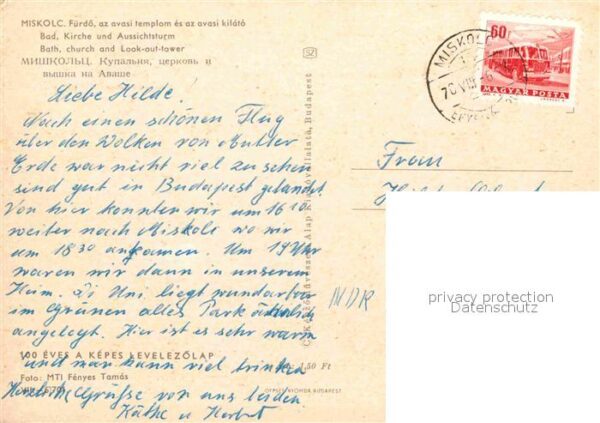 MISKOLC. Fürdő, az avasi templom és az avasi kilátó
Bad, Kirche und Aussichtsturm
Bath, church and Look-out-tower
МИШКОЛЬЦ. Купальня, церковь и
вышка на Аваше
Liebe Hilde!
Nach einen schönen Flug
über den Wolken von Mutter
Erde war nicht viel zu sehen
sind gut in Budapest gelandet
Von hier konnten wir um 16 10
weiter nach Miskolc wo wir
um 18 30 ankamen. Um 19 Uhr
waren wir dann in unserem
Heim. Di Uni liegt wunderbar
im Grünen alles Park
angelegt. Hier ist es sehr warm
und man kann viel trinken
Herzliche Grüsse von uns beiden
Käthe u Herbert
100 ÉVES A KÉPES LEVELEZŐLAP
Foto: MTI Fényes Tamás
Alap Budapest
SZ
1,50 Ft
OFFSET NYOMDA BUDAPEST
MISKOLC
60f
MAGYAR POSTA
Frau
privacy protection
Datenschutz